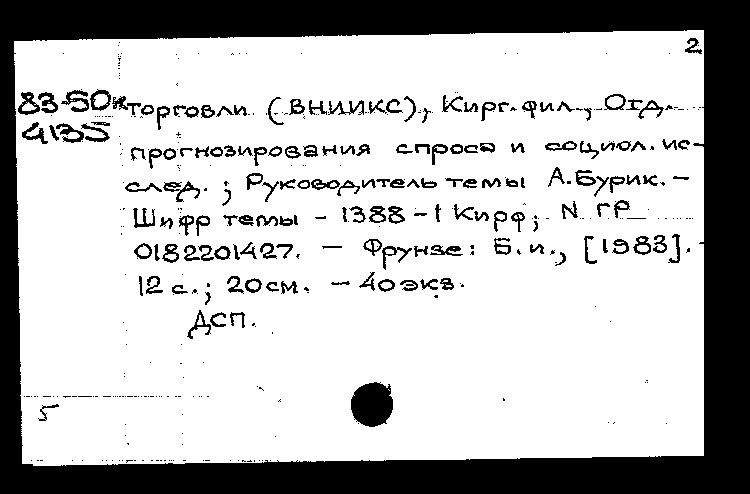 2
83-50к
4135
торговли (ВНИИКС), Кирг. фил., Отд.
прогнозирования спроса и социол. ис-
след. ; Руководитель темы А.Бурик. –
Шифр темы – 1388 – 1 Кирф; N ГР
0182201427. – Фрунзе: Б.и., [1983]. -
12 с.; 20 см. – 40 экз.
ДСП.
5